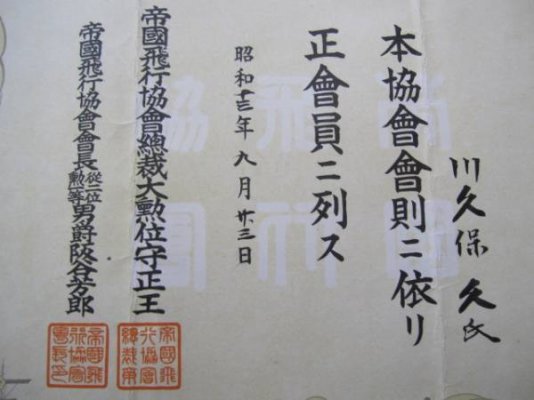 川久保久氏
本協會會則ニ依リ
正會員ニ列ス
昭和十三年九月廿三日
帝國飛行協會總裁大勲位守正王
帝國飛行協會會長從二位勲一等男爵阪谷芳郎
帝國飛行協會
帝國飛
行協會
總裁章
帝國飛
行協會
會長印